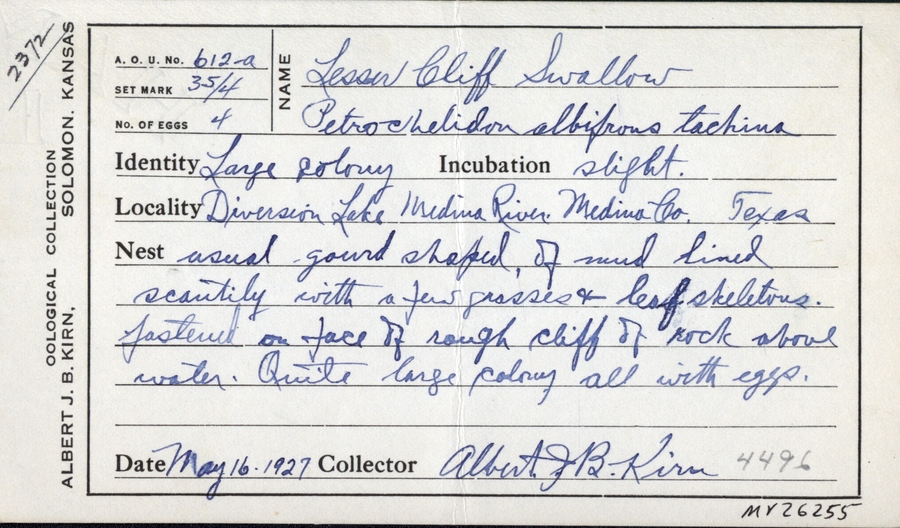 2372
OOLOGICAL COLLECTION
ALBERT J. B. KIRN, SOLOMON, KANSAS
A. O. U. No. 612-a
SET MARK 35/4
No. OF EGGS 4
NAME Lesser Cliff Swallow
Petrochelidon albifrons tachina
Identity Large colony Incubation slight.
Locality Diversion Lake Medina River. Medina Co. Texas
Nest usual gourd shaped, of mud lined
scantily with a few grasses & leaf skeletons.
fastened on face of rough cliff of rock above
water. Quite large colony all with eggs.
Date May 16. 1927 Collector Albert J. B. Kirn 4496
MV26255